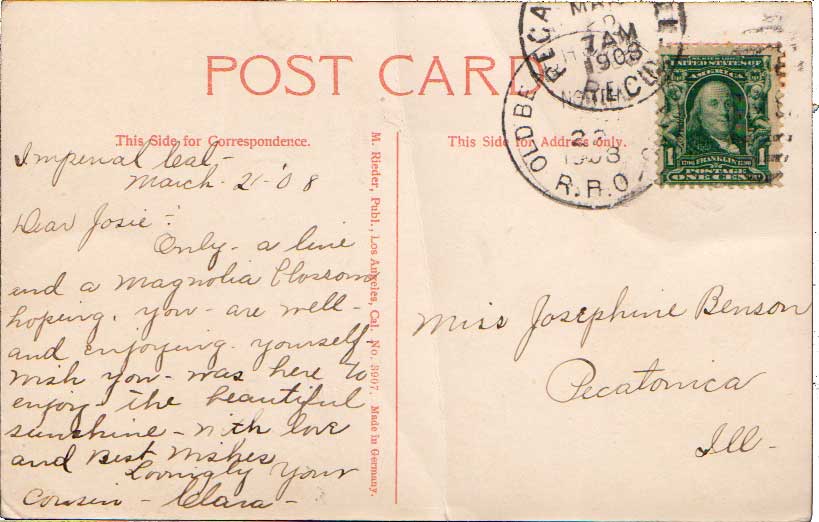 POST CARD
This Side for Correspondence.
This Side for Address only.
Imperial Cal-
March. 21-'08
Dear Josie:-
Only- a line
and a Magnolia blossom
hoping. you- are well-
and enjoying- yourself-
wish you- was here to
enjoy- the beautiful
sunshine- with love
and Best Wishes
Lovingly Your
Cousin- Clara-
M. Rieder, Publ., Los Angeles, Cal. No. 3907. Made in Germany.
Miss Josephine Benson
Pecatonica
Ill-
7 AM
1908
REC'D
22
1908
R.P.O.
UNITED STATES OF
AMERICA
1 FRANKLIN 1
POSTAGE
ONE CENT